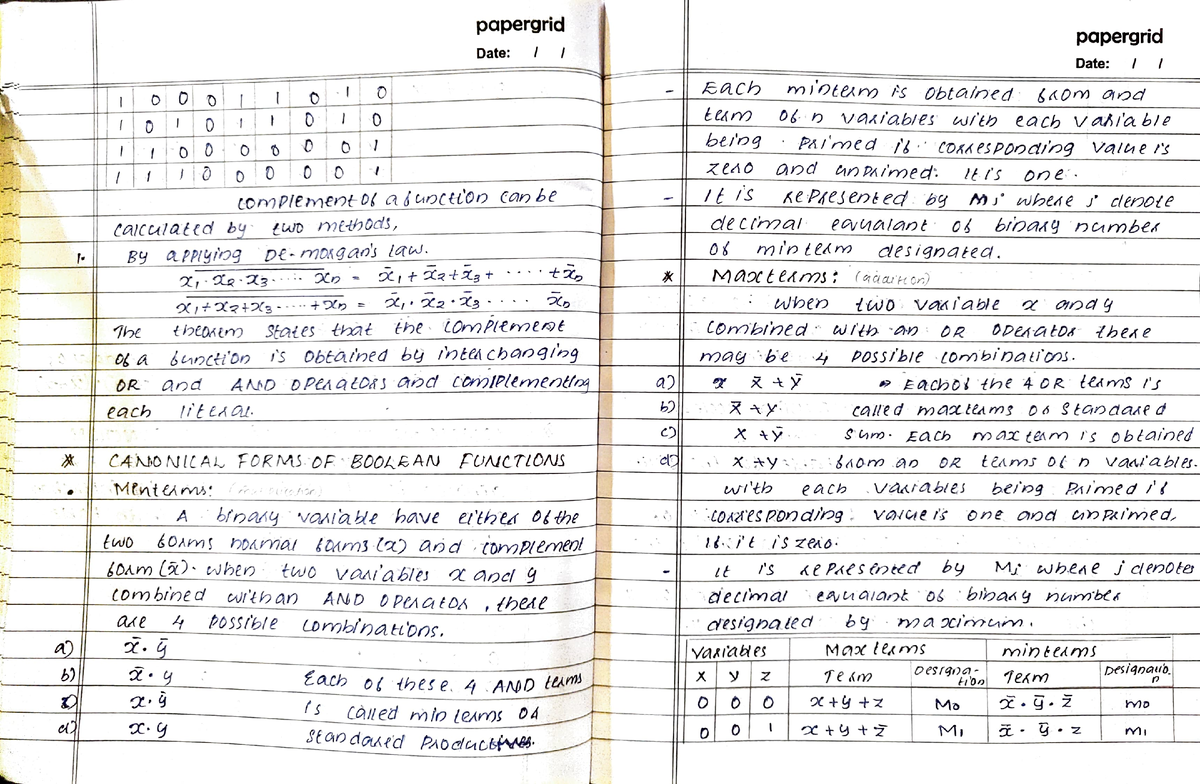 papergrid
Date: / /
1 0 0 0 1 1 0 1 0
1 0 1 0 1 1 0 1 0
1 1 0 0 0 0 0 0 1
1 1 1 0 0 0 0 0 1
complement of a function can be
calculated by two methods,
1. By applying De-morgan's law.
x̅₁·x̅₂·x̅₃..... x̅n = x̄₁ + x̄₂ + x̄₃ + ..... + x̄n
x̅₁+x̅₂+x̅₃.....+x̅n = x̄₁ . x̄₂ . x̄₃ ..... x̄n
The theorem states that the complement
of a function is obtained by interchanging
OR and AND operators and complementing
each literal.
* CANONICAL FORMS OF BOOLEAN FUNCTIONS
• Minterms:
A binary variable have either of the
two forms normal forms (x) and complement
form (x̄). when two variables x and y
combined with an AND operator, there
are 4 possible combinations.
a) x̄ . ȳ
b) x̄ . y Each of these 4 AND terms
c) x . ȳ is called min terms or
d) x . y standared product
papergrid
Date: / /
- Each minterm is obtained from and
term of n variables with each variable
being primed if corresponding value is
zero and unprimed. It is one.
- It is represented by Mj where j denote
decimal equalant of binary number
of minterm designated.
* Maxterms: (addition)
when two variable x and y
combined with an OR operator there
may be 4 possible combinations.
a) x x̄ + ȳ Each of the 4 OR terms is
b) x̄ + y called maxterms or standared
c) x + ȳ sum. Each max term is obtained
d) x + y from an OR terms of n variables.
with each variables being primed if
corresponding value is one and unprimed,
if it is zero.
- It is represented by Mj where j denotes
decimal equalant of binary number
designated by maximum.
variables Max terms minterms
x y z Term Designation Term Designation
0 0 0 x+y+z M0 x̄ . ȳ . z̄ m0
0 0 1 x+y+z̄ M1 x̄ . ȳ . z m1